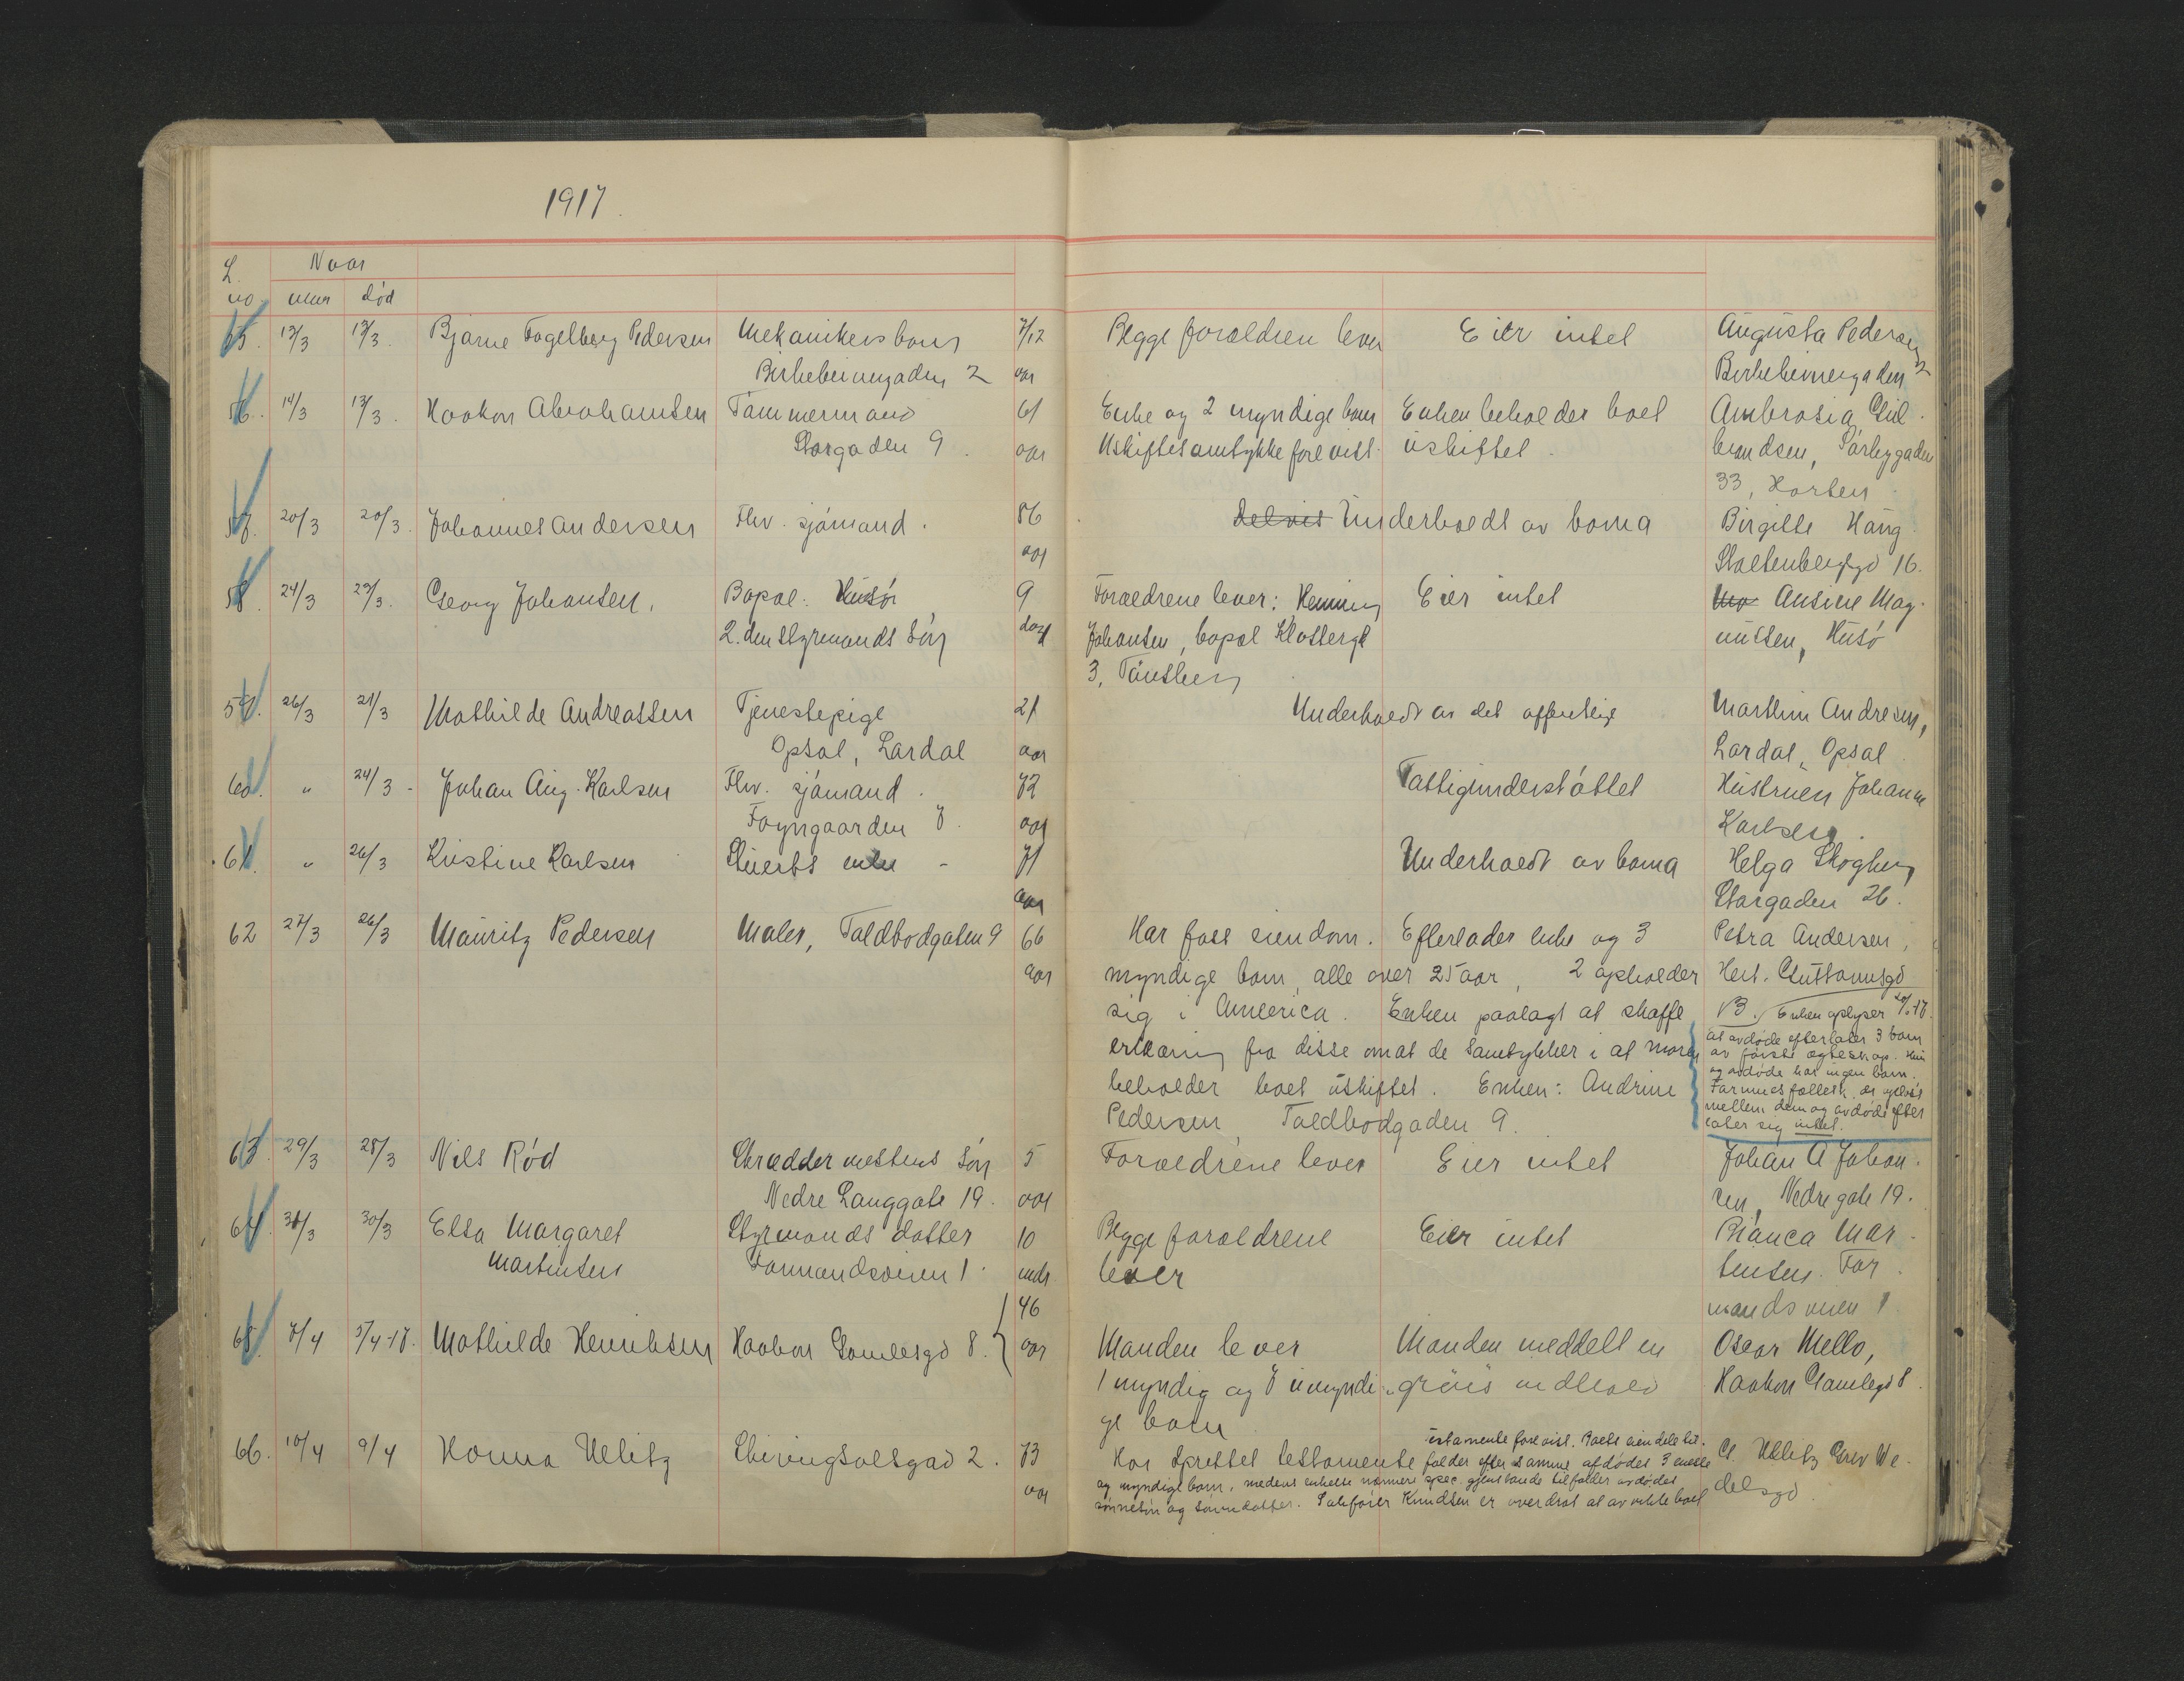 1917.
L. no. Naar
mm død
55. 13/3 13/3. Bjarne Fagelberg Pedersen Mekanikers barn 7/12 Begge foreldren lever Eier intet Augusta Pedersen
Birkebeinergaden 2 aar Birkebeinergaden 2
56. 14/3 13/3. Haakon Abrahamsen Tømmermand 61 Enke og 2 myndige barn Enken beholder boet Ambrosia Gul-
Storgaden 9. aar Uskiftesamtykke forevist. uskiftet. brandsen, Sørbygaden
33, Horten.
57. 20/3 20/3. Johannes Andersen Fhv. sjømand. 86 Delvis Underholdt av barna Birgitte Haug
aar Stoltenbergsgd 16.
58. 24/3 23/3. Georg Johansen, Bopæl: Husø 9 Foraedrene lever: Henning Eier intet Ma Ansine Mag-
2.den Styrmands Søn dage Johansen, bopæl Klostergt nussen, Husø
3, Tønsberg
59. 26/3 21/3 Mathilde Andreassen Tjenestepige 21 Underholdt av det offentlige Marthin Andresen,
Opsal, Lardal aar Lardal, Opsal
60. " 24/3 - Johan Aug. Karlsen Fhv. sjømand. 72 Fattigunderstøttet Hustruen Johanne
Foyngaarden 7. aar Karlsen.
61. " 26/3 Kristine Karlsen Stuerts enke - 71 Underholdt av barna Helga Skogberg
aar Storgaden 26.
62 27/3 26/3 Mauritz Pedersen Maler, Toldbodgaten 9 66 Har fast eiendom. Efterlader enke og 3 Petra Andersen,
aar myndige barn, alle over 25 aar, 2 opholder Hert. Guttormsgd
sig i America. Enken paalagt at skaffe NB. Enken oplyser
erklæring fra disse om at de samtykker i at moren at avdøde efterlater 3 barn
av første egteskap. Hun
beholder boet uskiftet. Enken: Andrine og avdøde har ingen barn.
Formuesfællesk. er opløst
Pedersen, Toldbodgaden 9. mellem dem og avdøde efter
later sig intet.
63. 29/3 28/3 Nils Rød Skreddermesters Søn 5 Foraeldrene lever Eier intet Johan A Johan-
Nedre Langgate 19. aar sen, Nedregate 19.
64. 31/3 30/3 Elsa Margaret Styrmands datter 10 Begge foraeldrene Eier intet Bianca Mar-
Martinsen Formandsveien 1. mdr lever tensen. For-
mandsveien 1
65. 7/4 5/4-17. Mathilde Henriksen Haakon Gamlesgd 8. 46 aar Manden lever Manden meddelt en Oscar Mello,
1 myndig og 7 umyndi- Haakon Gamlegd 8.
ge barn
66. 10/4 9/4 Hanna Ulitz Sivingsoltsgad 2. 73 Har oprettet testamente testamente forevist. Boets eiendele til-
falder efter samme afdødes 3 eneste G. Ulitz Grev We-
aar og myndige barn, medens enkelte nærmere spec. gjenstande tilfalder avdødes delsgd.
sønnesøn og sønnedatter. Sakfører Knudsen er overdrat at avvikle boet